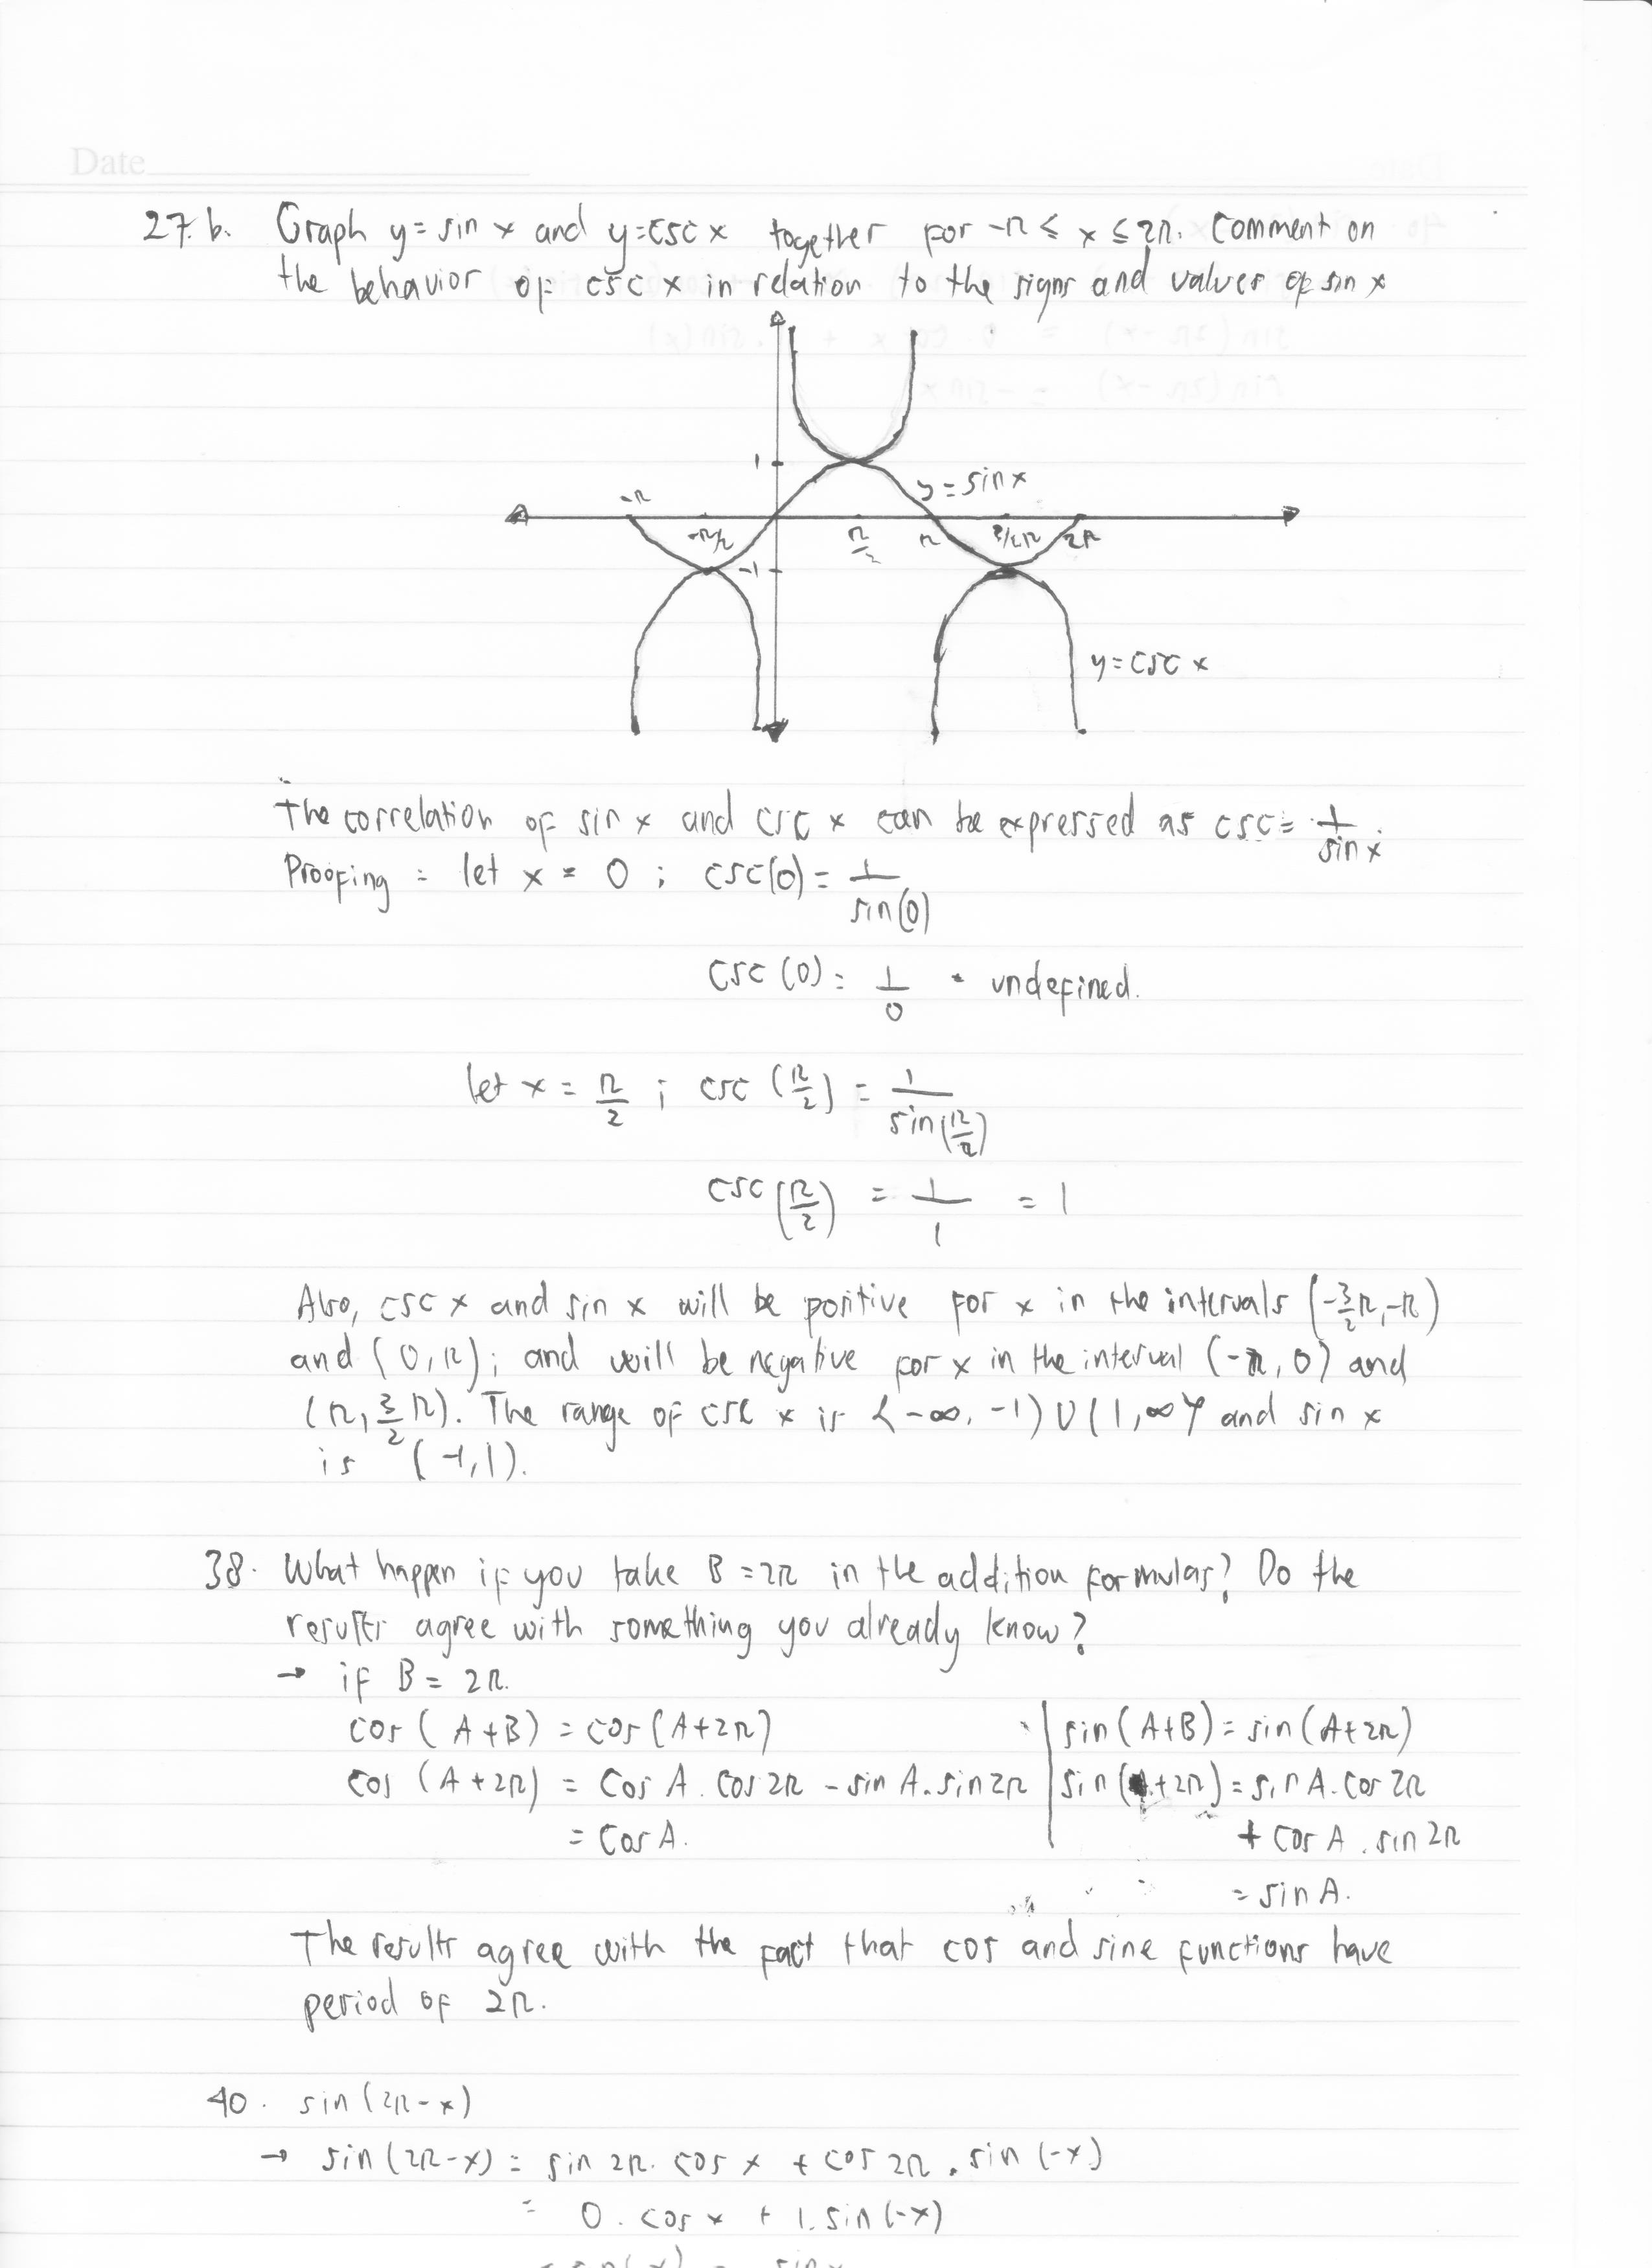 Date
27.b. Graph y = sin x and y = csc x together for -π ≤ x ≤ 2π. Comment on
the behavior of csc x in relation to the signs and values of sin x
1
y = sin x
-π
-π/2
π/2
π
3/2π
2π
-1
y = csc x
The correlation of sin x and csc x can be expressed as csc = 1/sin x.
Proofing = let x = 0 ; csc(0) = 1/sin(0)
csc (0) = 1/0 = undefined.
let x = π/2 ; csc (π/2) = 1/sin(π/2)
csc (π/2) = 1/1 = 1
Also, csc x and sin x will be positive for x in the intervals (-3/2π, -π)
and (0, π); and will be negative for x in the interval (-π, 0) and
(π, 3/2π). The range of csc x is {-∞, -1) U (1, ∞} and sin x
is (-1, 1).
38. What happen if you take B = 2π in the addition formulas? Do the
results agree with something you already know?
→ if B = 2π.
cos (A + B) = cos (A + 2π)
cos (A + 2π) = cos A . cos 2π - sin A . sin 2π
= cos A.
sin (A + B) = sin (A + 2π)
sin (A + 2π) = sin A . cos 2π
+ cos A . sin 2π
= sin A.
The results agree with the fact that cos and sine functions have
period of 2π.
40. sin (2π - x)
→ sin (2π - x) = sin 2π . cos x + cos 2π . sin (-x)
= 0 . cos x + 1 . sin (-x)